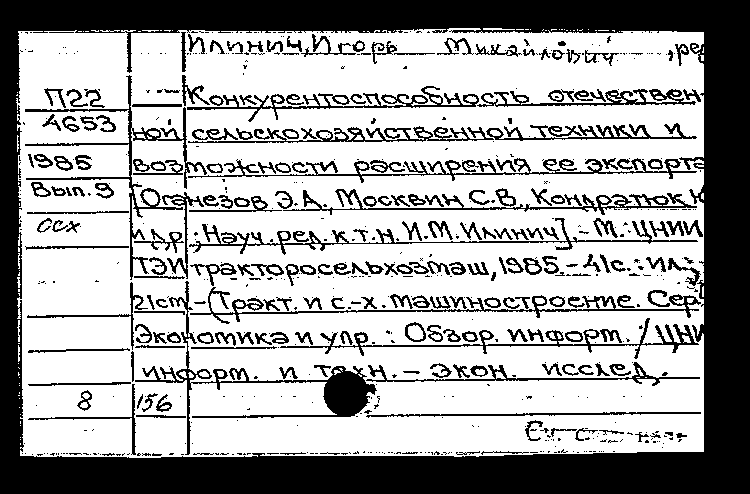 Илинич, Игорь Михайлович, ред
П22 Конкурентоспособность отечествен-
4653 ной сельскохозяйственной техники и
1985 возможности расширения ее экспорта
Вып. 9 [Оганезов Э.А., Москвин С.В., Кондратюк
ссх и др.; Науч. ред. к.т.н. И.М. Илинич]. - М.: ЦНИИ
ТЭИ тракторосельхозмаш, 1985. - 41с.: ил.;
21 cm. - (Тракт. и с.-х. машиностроение. Сер.
Экономика и упр.: Обзор. информ. / ЦНИ
информ. и техн. - экон. исслед.
8 156
См.